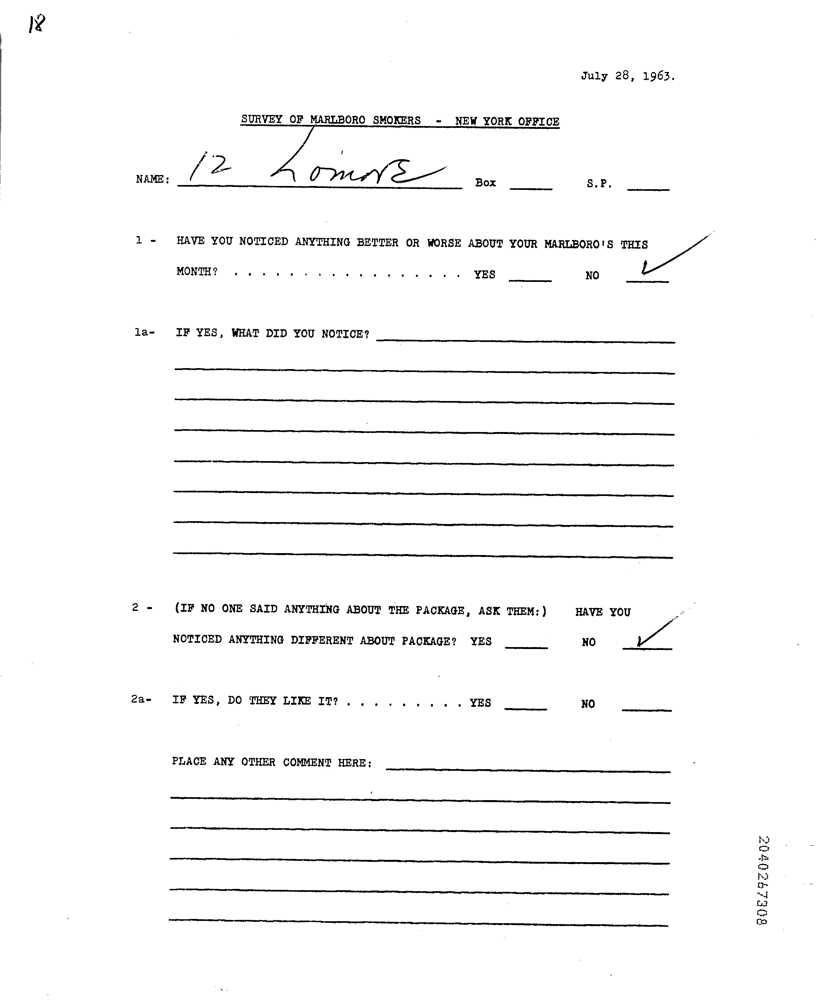 18
July 28, 1963.
SURVEY OF MARLBORO SMOKERS - NEW YORK OFFICE
NAME: 12 Box ______ S.P. ______
1 - HAVE YOU NOTICED ANYTHING BETTER OR WORSE ABOUT YOUR MARLBORO'S THIS
MONTH? . . . . . . . . . . . . . . . . . YES ______ NO ✓
1a- IF YES, WHAT DID YOU NOTICE?
2 - (IF NO ONE SAID ANYTHING ABOUT THE PACKAGE, ASK THEM:) HAVE YOU
NOTICED ANYTHING DIFFERENT ABOUT PACKAGE? YES ______ NO ✓
2a- IF YES, DO THEY LIKE IT? . . . . . . . . . YES ______ NO ______
PLACE ANY OTHER COMMENT HERE:
2040267308